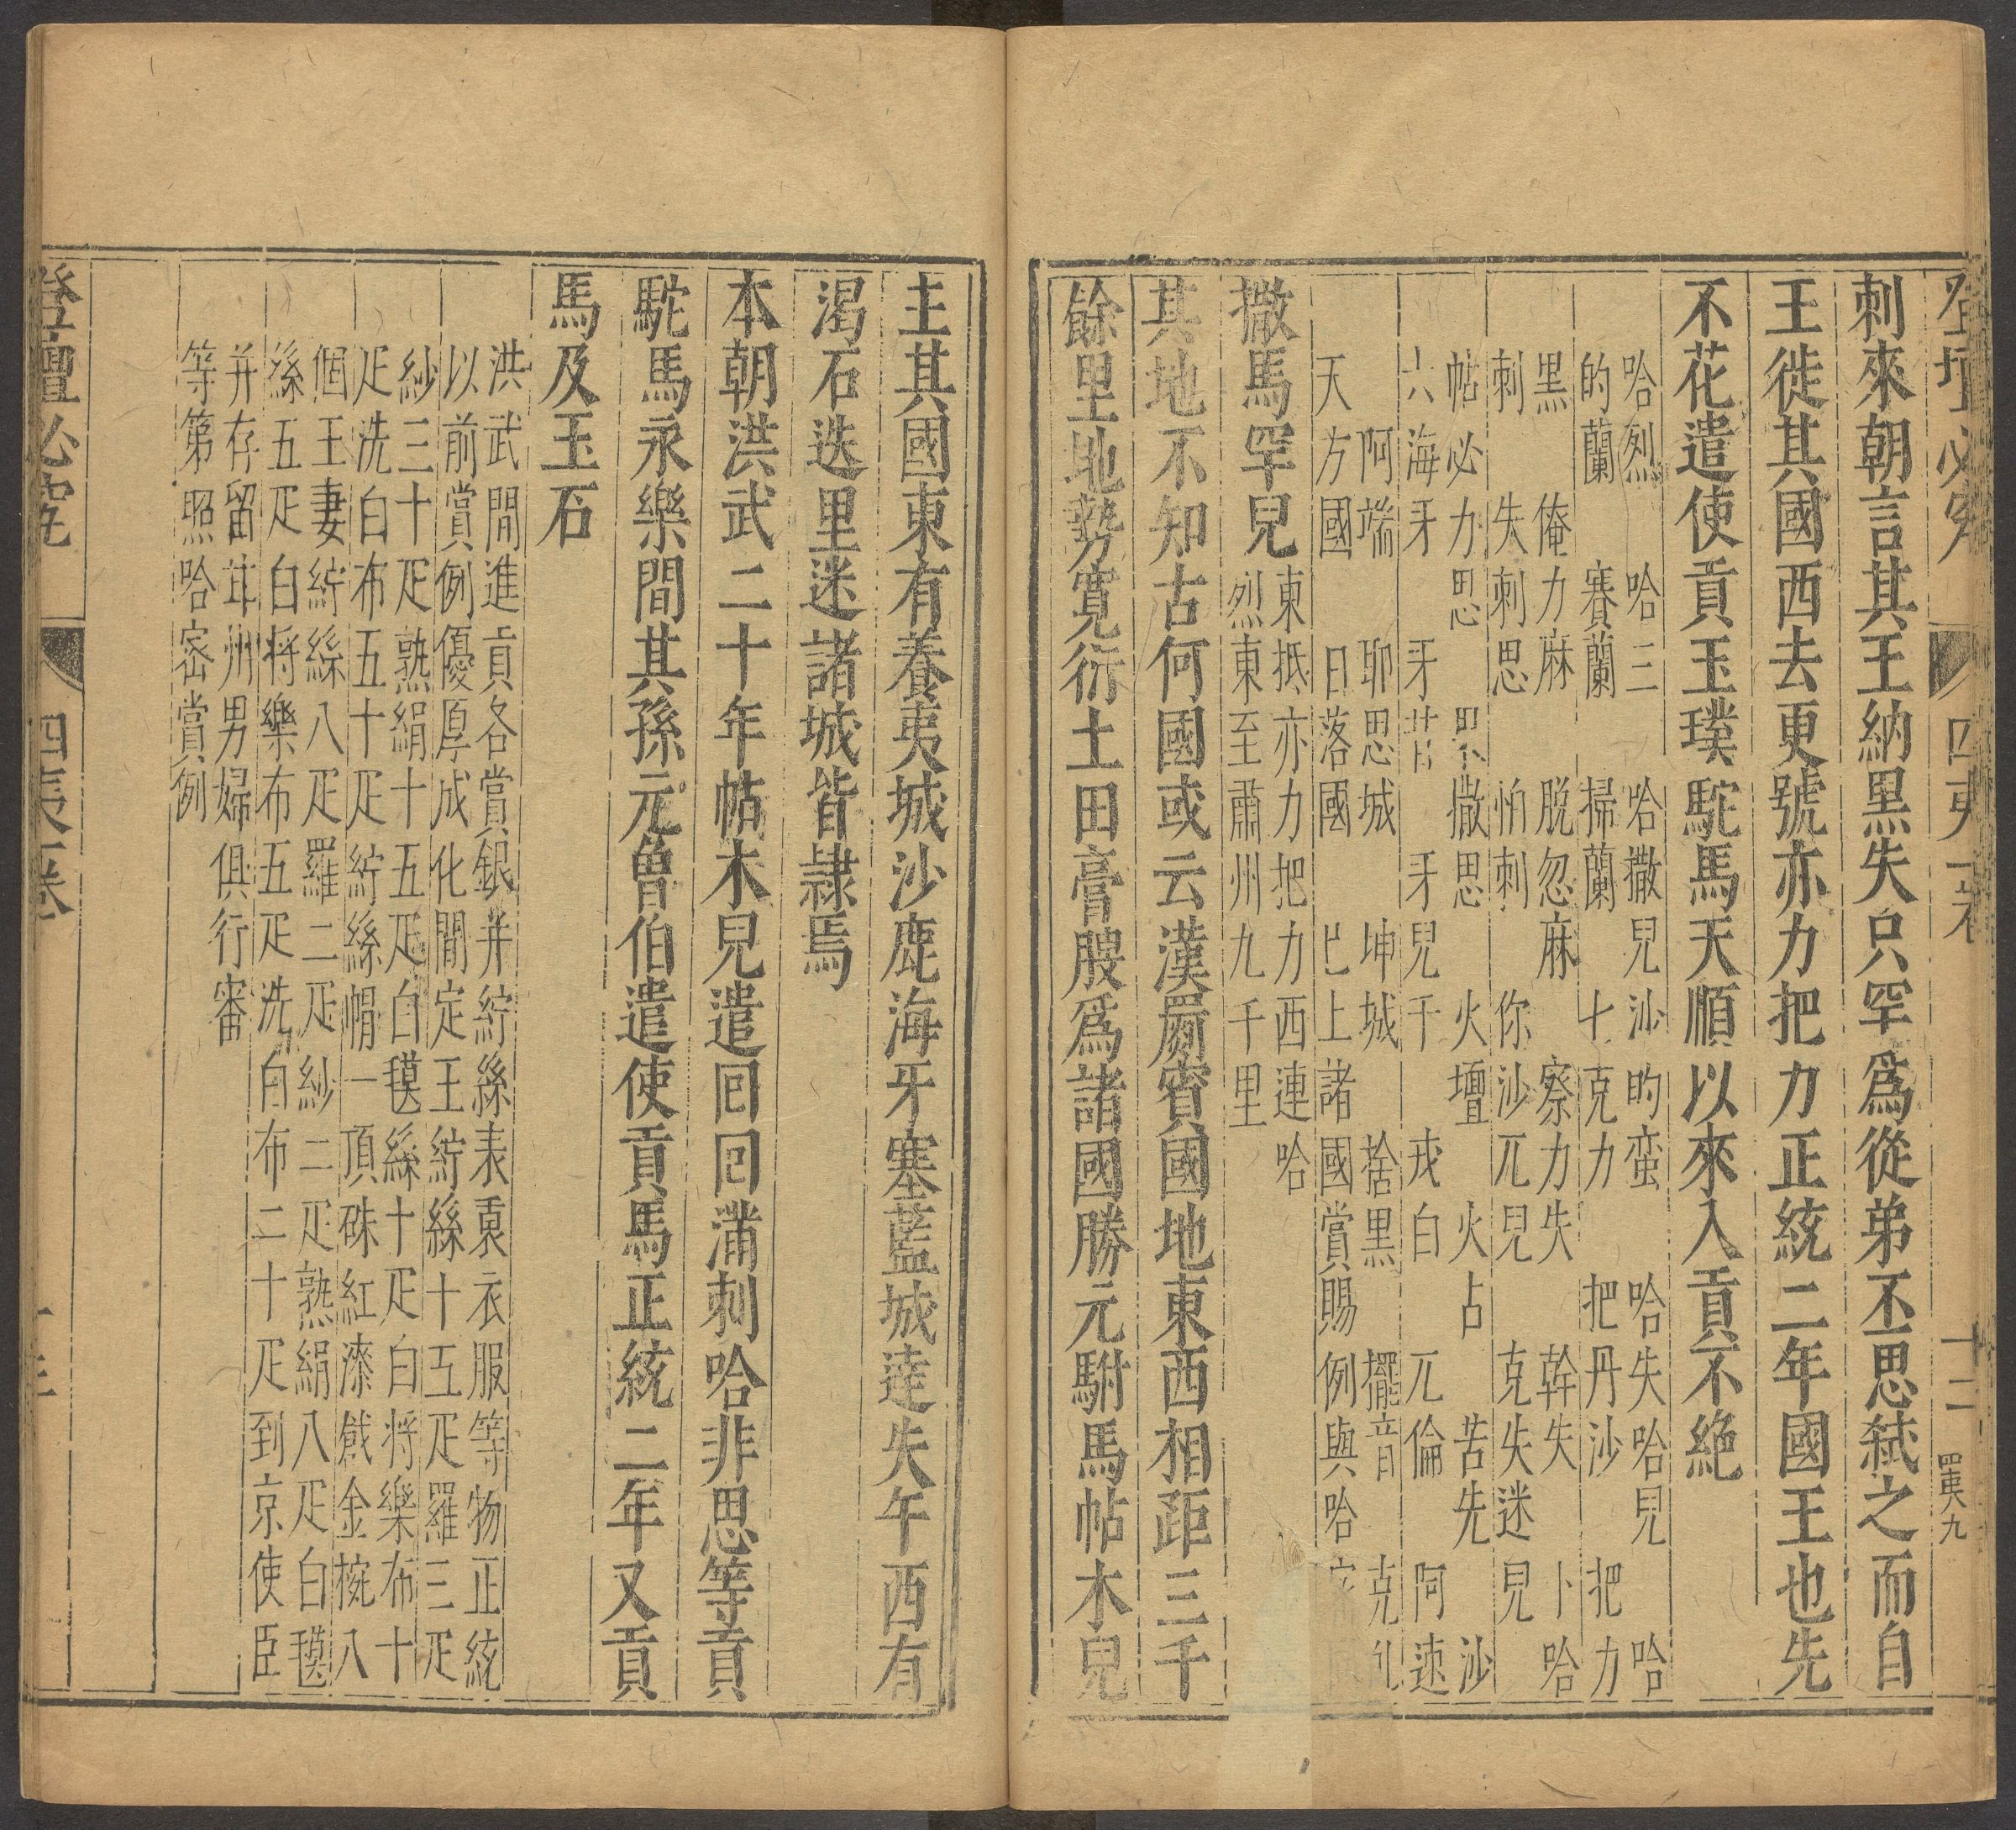 刺來朝言其王納黒失只罕爲從弟丕思弒之而自
王徙其國西去更號亦力把力正統二年國王也先
不花遣使貢玉璞駝馬天順以來入貢不絶
哈烈 哈三 哈撒兒 沙的蛮 哈失哈兒 哈
的蘭 賽蘭 掃蘭 十克力 把丹沙 把力
黒 俺力麻 脫忽麻 察力失 幹失 卜哈
刺 失刺思 怕刺 你沙兀兒 克失迷兒
帖必力思 撒思 火壇 火占 苦先 沙
六海牙 牙昔 牙兒干 戎白 兀倫 阿速
阿端 耶思城 坤城 捨黒 擺音 克
天方國 日落國 巳上諸國賞賜例與哈
撒馬罕兒 東抵亦力把力西連哈
烈東至肅州九千里
其地不知古何國或云漢罽賓國地東西相距三千
餘里地勢寛衍土田膏腴爲諸國勝元駙馬帖木兒
主其國東有養夷城沙鹿海牙塞藍城達失午西有
渴石迭里迷諸城皆隷焉
本朝洪武二十年帖木兒遣回回滿刺哈非思等貢
駝馬永樂間其孫元魯伯遣使貢馬正統二年又貢
馬及玉石
洪武間進貢各賞銀并紵絲表裏衣服等物正統
以前賞例優厚成化間定王紵絲十五疋羅三疋
紗三十疋熟絹十五疋白氁絲十疋白将樂布十
疋洗白布五十疋紵絲帽一頂硃紅漆戧金椀八
個王妻紵絲八疋羅二疋紗二疋熟絹八疋白氁
絲五疋白将樂布五疋洗白布二十疋到京使臣
并存留甘州男婦俱行審
等第照哈宻賞例
登壇必究
四夷一卷
十二
四夷九
登壇必究
四夷一卷
十三